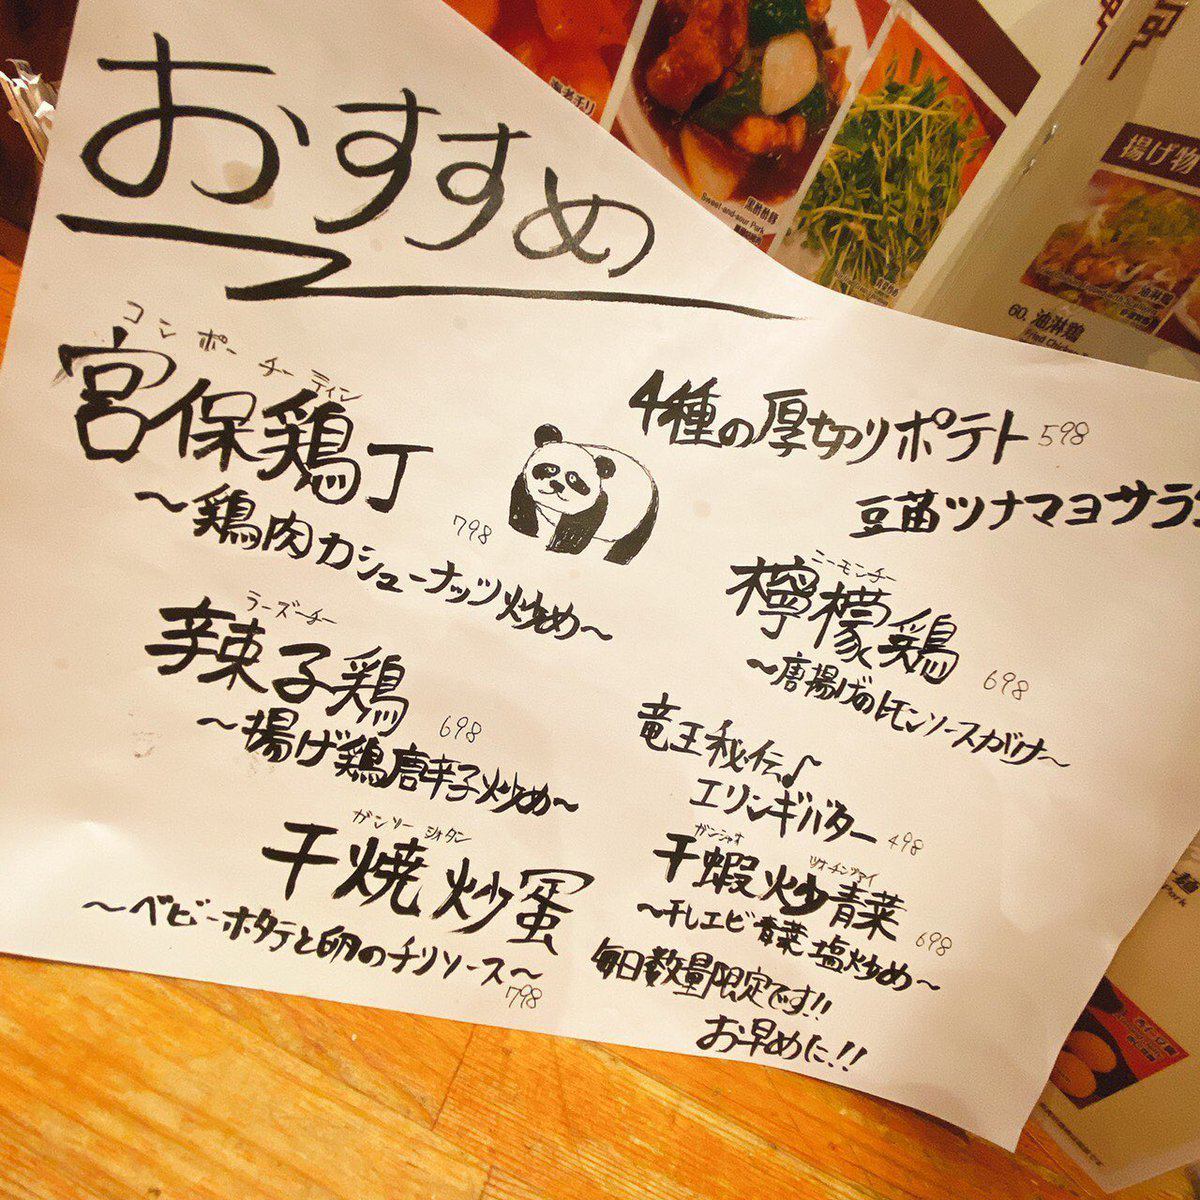 おすすめ
コンポーチーティン
宮保鶏丁
798
〜鶏肉カシューナッツ炒め〜
ラーズーチー
辣子鶏
698
〜揚げ鶏唐辛子炒め〜
ガンソーシオタン
干焼炒蛋
〜ベビーホタテと卵のチリソース〜
798
4種の厚切りポテト 598
豆苗ツナマヨサラ
ニーモンチー
檸檬鶏 698
〜唐揚げのレモンソースがけ〜
竜王秘伝♪
エリンギバター 498
ガンシャオ ツオチンツァイ
干蝦炒青菜 698
〜干しエビ青菜塩炒め〜
毎日数量限定です!!
お早めに!!
海老チリ
黒酢酢豚
Sweet-and-sour Pork
揚げ物
油淋鶏
60. 油淋鶏
Fried Chicken